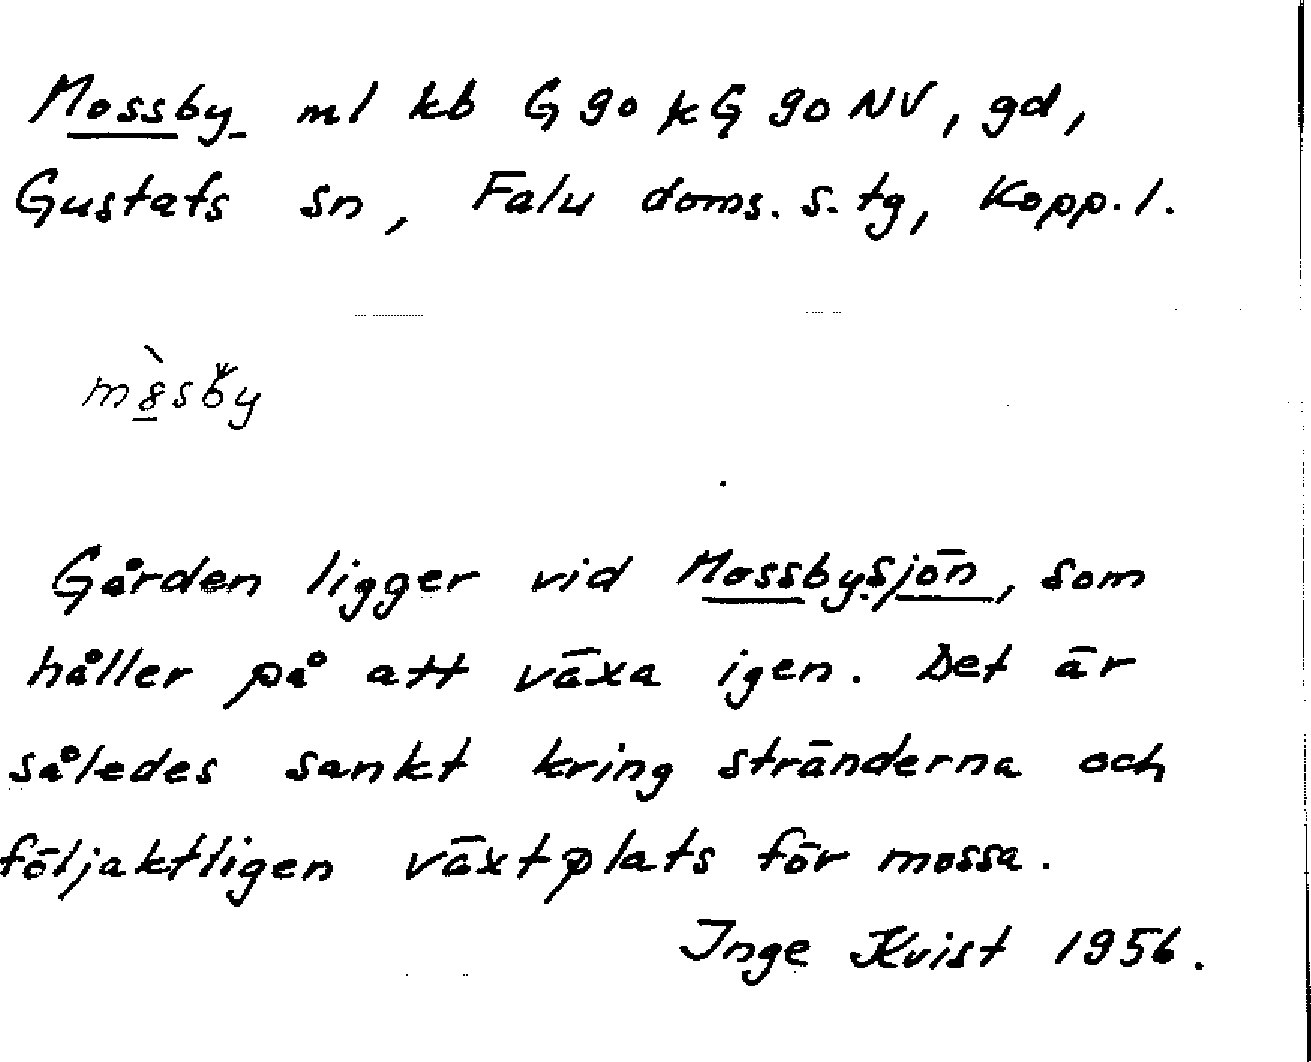 Mossby ml kb G 90 kG 90 NV, gd,
Gustafs sn, Falu doms. s. tg, Kopp. l.
m8̀sby
Gården ligger vid Mossbysjön, som
håller på att växa igen. Det är
således sankt kring stränderna och
följaktligen växtplats för mossa.
Inge Kvist 1956.